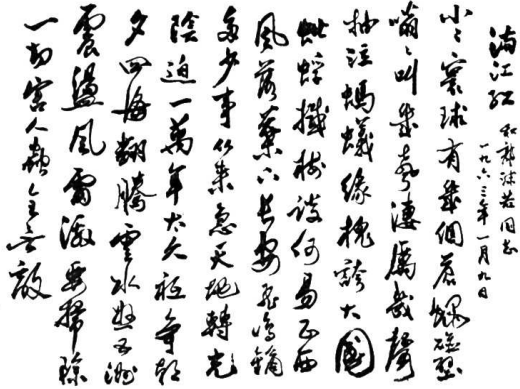 滿江紅
和郭沫若同志
一九六三年一月九日
小小寰球有幾個蒼蠅碰壁
嗡嗡叫幾聲凄厲幾聲
抽泣螞蟻緣槐誇大國
蚍蜉撼樹談何易正西
風落葉下長安飛鳴鏑
多少事從來急天地轉光
陰迫一萬年太久祇爭朝
夕四海翻騰雲水怒五洲
震盪風雷激要掃除
一切害人蟲全無敵